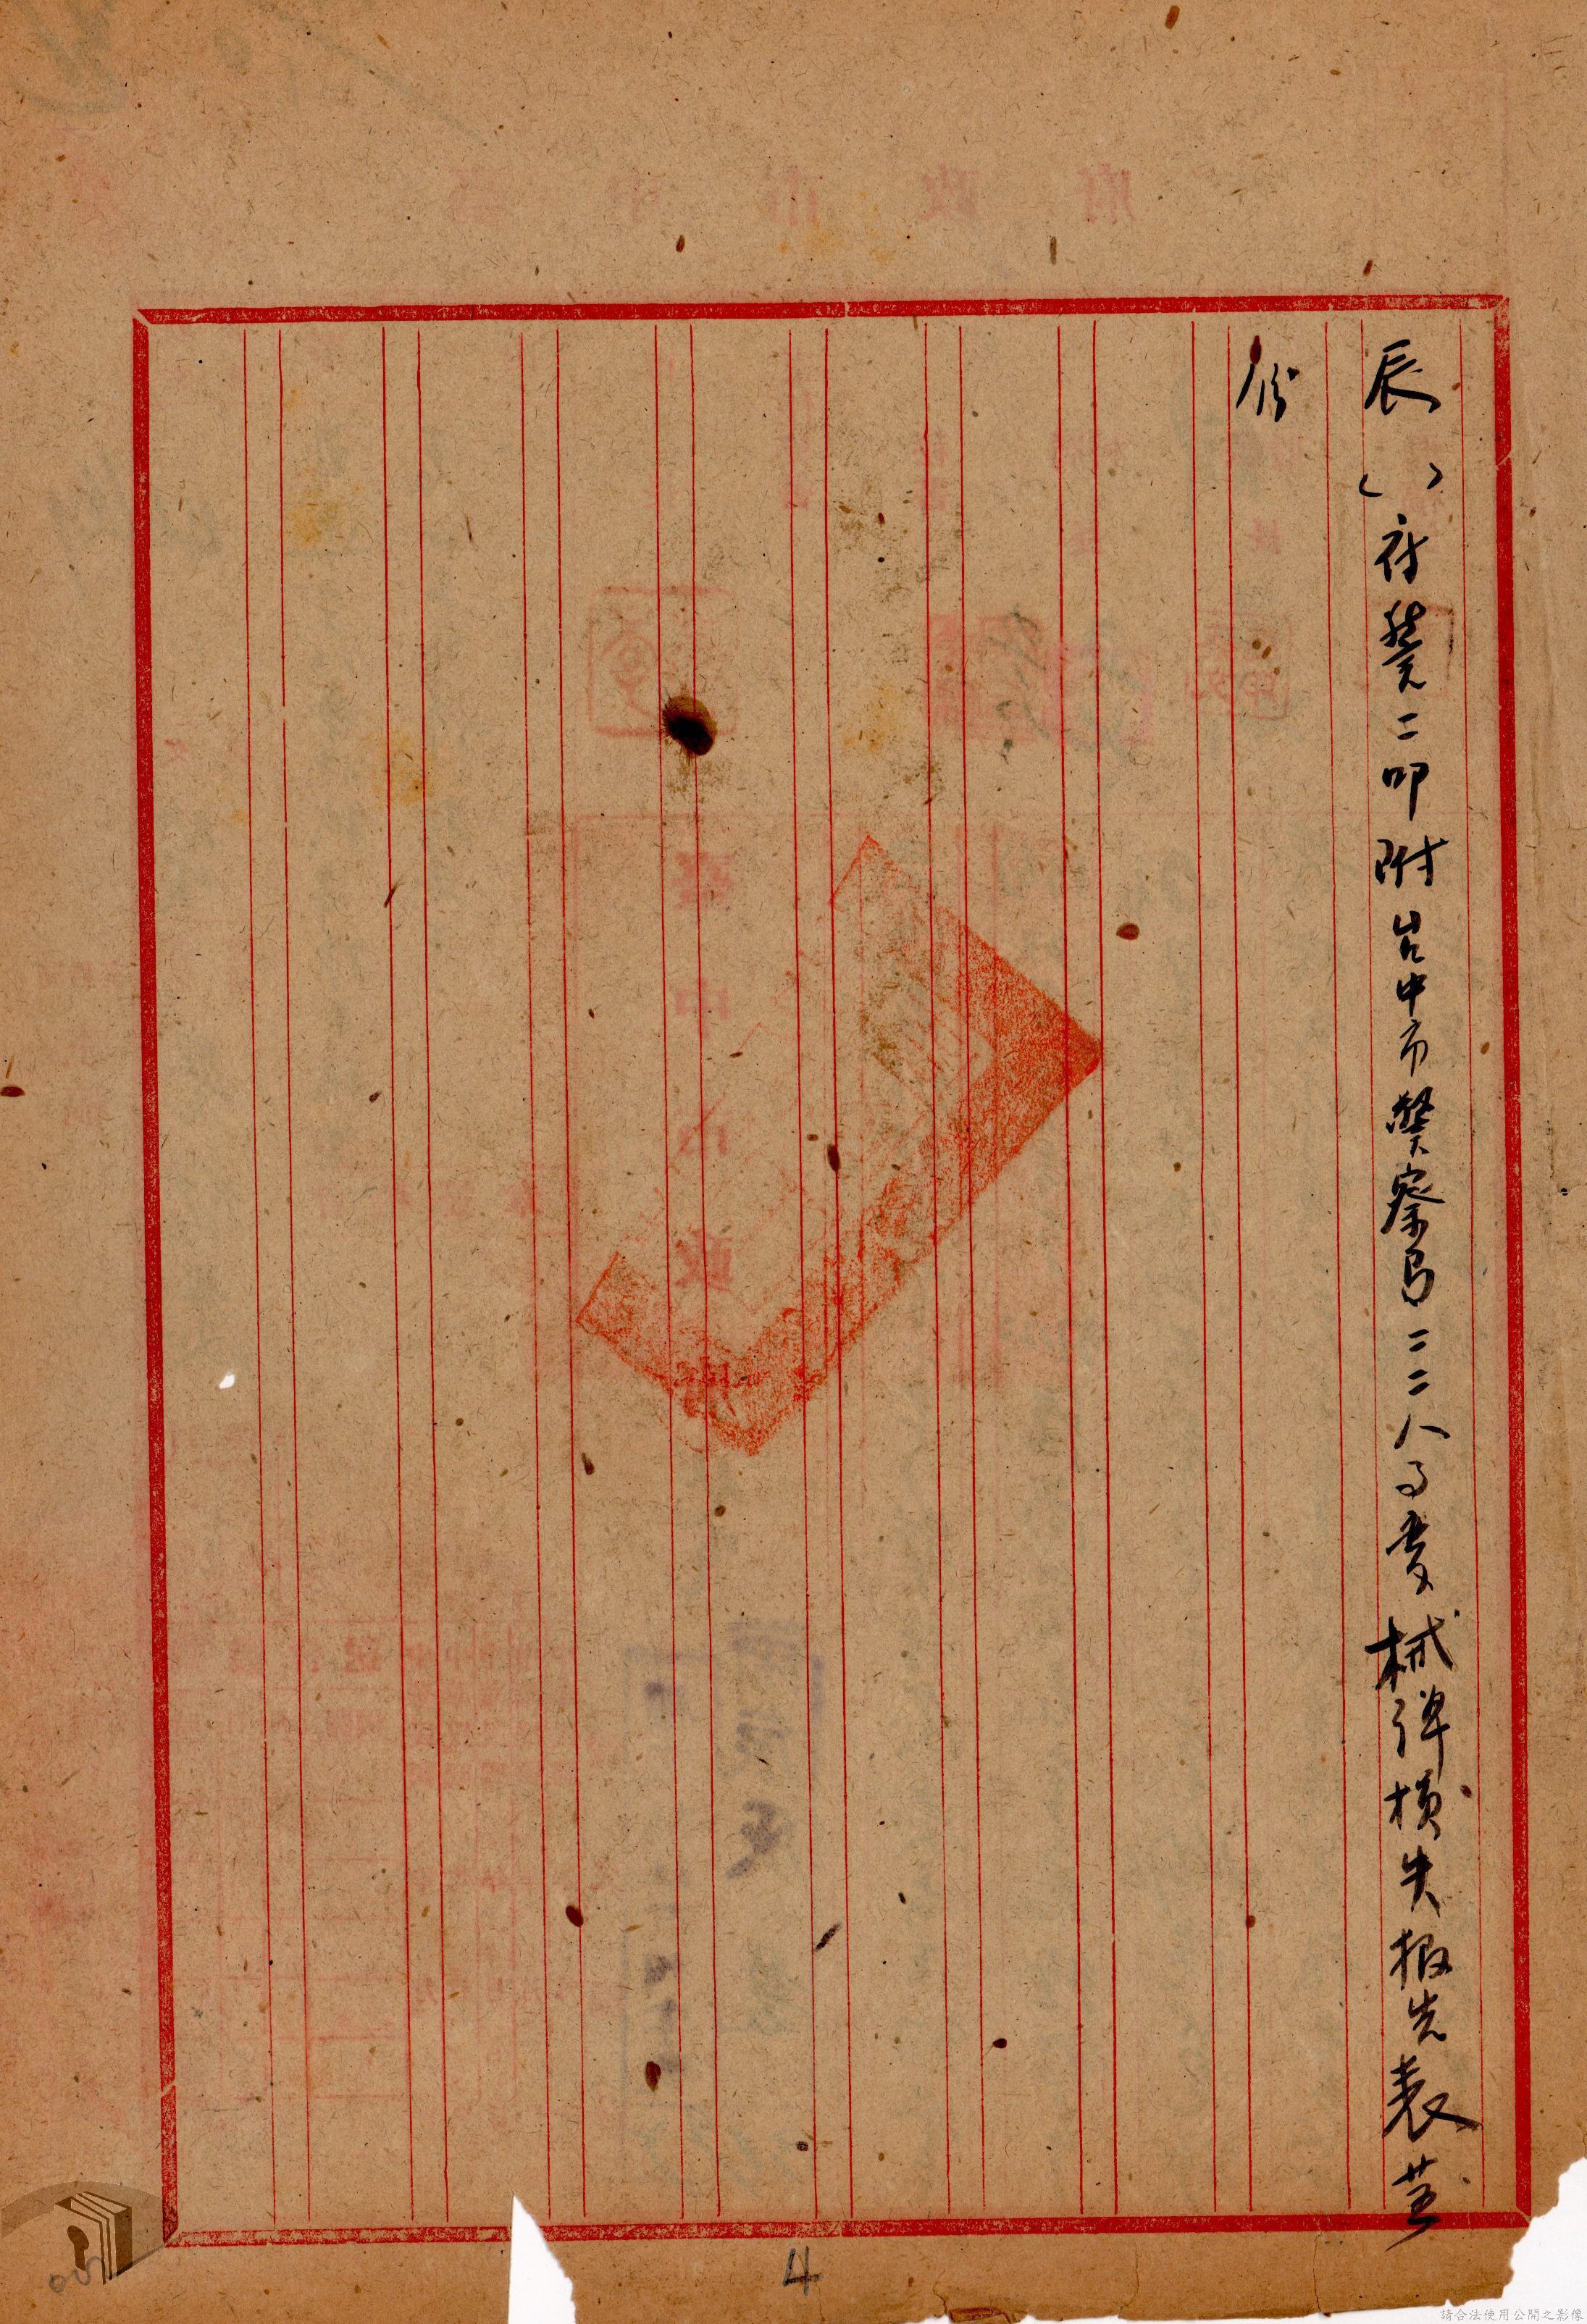 辰（ ）府警二叩附台中市警察局二二八事變械彈損失報告表壹
份
4
請合法使用公開之影像